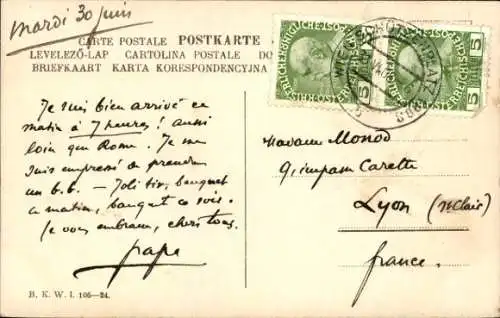 mardi 30 juin
CARTE POSTALE POSTKARTE
LEVELEZŐ-LAP CARTOLINA POSTALE DO
BRIEFKAART KARTA KORESPONDENCYJNA
Je suis bien arrivé ce
matin à 7 heures! aussi
loin que Rome. Je me
suis empressé de prendre
un b.b. — Joli tir, banquet
ce matin, banquet ce soir.
Je vous embrasse, chers tous.
papa
Madame Monod
9, impasse Catette
Lyon (St Clair)
france.
5
5
B. K. W. I. 106—24.